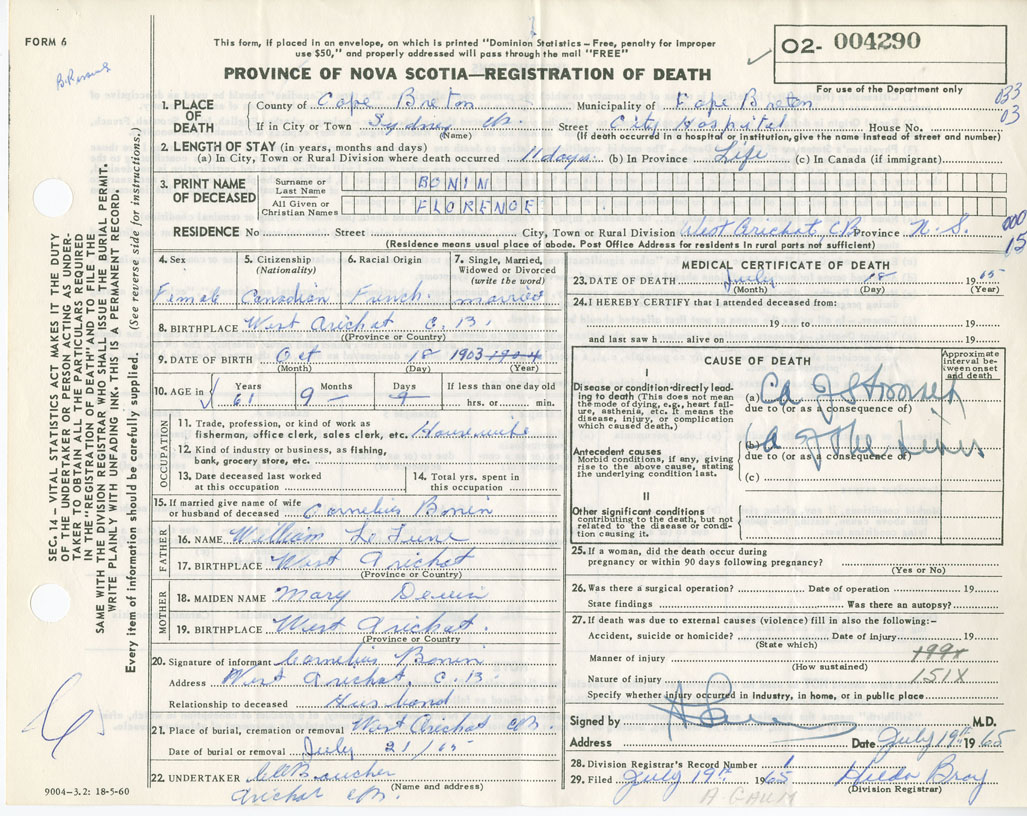 FORM 6
This form, if placed in an envelope, on which is printed "Dominion Statistics – Free, penalty for improper
use $50," and properly addressed will pass through the mail "FREE"
O2- 004290
PROVINCE OF NOVA SCOTIA—REGISTRATION OF DEATH
For use of the Department only
B3
03
1. PLACE OF DEATH
County of Cape Breton Municipality of Cape Breton
If in City or Town Sydney CB. Street City Hospital House No.
(Name) (If death occurred in a hospital or institution, give the name instead of street and number)
2. LENGTH OF STAY (in years, months and days)
(a) In City, Town or Rural Division where death occurred 11 days. (b) In Province Life (c) In Canada (if immigrant)
3. PRINT NAME OF DECEASED
Surname or Last Name BONIN
All Given or Christian Names FLORENCE
RESIDENCE No Street City, Town or Rural Division West Arichat, CB Province N. S.
(Residence means usual place of abode. Post Office Address for residents in rural parts not sufficient)
000
15
4. Sex 5. Citizenship (Nationality) 6. Racial Origin 7. Single, Married, Widowed or Divorced (write the word)
Female Canadian French married
8. BIRTHPLACE West Arichat C.B.
(Province or Country)
9. DATE OF BIRTH Oct 18 1903 1904
(Month) (Day) (Year)
10. AGE in Years Months Days If less than one day old
61 9 — hrs. or min.
OCCUPATION
11. Trade, profession, or kind of work as
fisherman, office clerk, sales clerk, etc. Housewife
12. Kind of industry or business, as fishing,
bank, grocery store, etc.
13. Date deceased last worked
at this occupation
14. Total yrs. spent in
this occupation
15. If married give name of wife
or husband of deceased Cornelius Bonin
FATHER
16. NAME William
17. BIRTHPLACE West Arichat
(Province or Country)
MOTHER
18. MAIDEN NAME Mary
19. BIRTHPLACE West Arichat.
(Province or Country)
20. Signature of informant Cornelius Bonin
Address West Arichat, C.B.
Relationship to deceased Husband
21. Place of burial, cremation or removal West Arichat CB
Date of burial or removal July 21/65
22. UNDERTAKER
(Name and address)
Arichat CB.
9004–3.2: 18-5-60
MEDICAL CERTIFICATE OF DEATH
23. DATE OF DEATH July 18 1965
(Month) (Day) (Year)
24. I HEREBY CERTIFY that I attended deceased from:
19 to 19
and last saw h alive on 19
CAUSE OF DEATH
Approximate interval between onset and death
I
Disease or condition directly leading to death (This does not mean the mode of dying, e.g., heart failure, asthenia, etc. It means the disease, injury, or complication which caused death.)
(a) Ca of Stomach
due to (or as a consequence of)
Antecedent causes
Morbid conditions, if any, giving rise to the above cause, stating the underlying condition last.
(b) Ca of the liver
due to (or as a consequence of)
(c)
II
Other significant conditions
contributing to the death, but not related to the disease or condition causing it.
25. If a woman, did the death occur during
pregnancy or within 90 days following pregnancy?
(Yes or No)
26. Was there a surgical operation? Date of operation 19
State findings Was there an autopsy?
27. If death was due to external causes (violence) fill in also the following:–
Accident, suicide or homicide? Date of injury 19
(State which)
Manner of injury
(How sustained)
Nature of injury 151X
Specify whether injury occurred in industry, in home, or in public place
Signed by M.D.
Address Date July 19th 1965
28. Division Registrar's Record Number 1
29. Filed July 19th 1965 Hilda Bray
(Division Registrar)
SEC. 14 – VITAL STATISTICS ACT MAKES IT THE DUTY
OF THE UNDERTAKER OR PERSON ACTING AS UNDER-
TAKER TO OBTAIN ALL THE PARTICULARS REQUIRED
IN THE "REGISTRATION OF DEATH" AND TO FILE THE
SAME WITH THE DIVISION REGISTRAR WHO SHALL ISSUE THE BURIAL PERMIT.
WRITE PLAINLY WITH UNFADING INK-THIS IS A PERMANENT RECORD.
Every item of information should be carefully supplied. (See reverse side for instructions.)